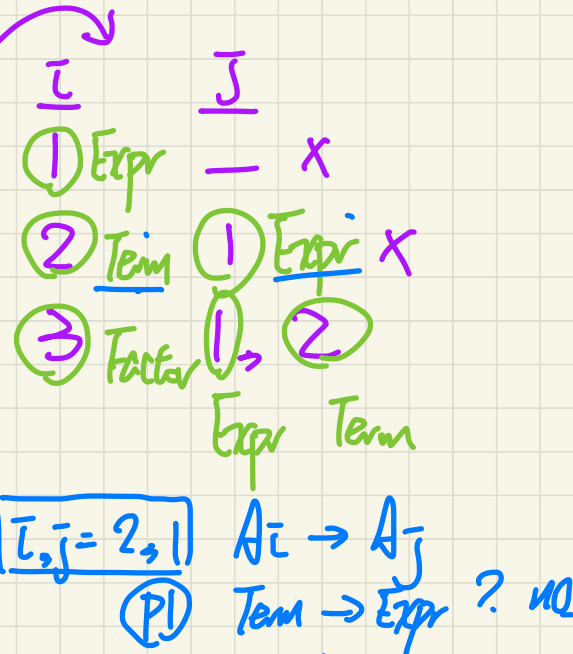 i j
1 Expr — x
2 Term 1 Expr x
3 Factor 1, 2
Expr Term
i,j = 2,1 Ai → Aj
P1 Term → Expr ? no